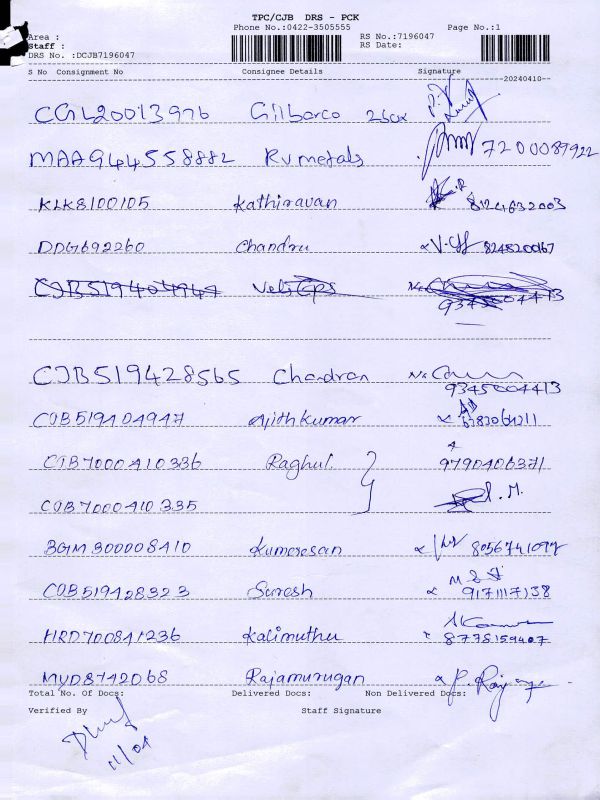 TPC/CJB DRS - PCK
Phone No.:0422-3505555 Page No.:1
Area : RS No.:7196047
Staff : RS Date:
DRS No. :DCJB7196047
S No Consignment No Consignee Details Signature
20240410
CGL20013976 Gilbarco
MAA944558882 RV metals 7200087922
KLK8100105 Kathiravan 8124632003
DDG692260 Chandru 824820067
CJB519404947
CJB519428565 Chandran 9345004413
COB519404947 Ajithkumar
CJB7000410336 Raghul. 9790406371
COB7000410335
BGM300008410 Kumaresan 8056741097
COB519428323 Suresh 9171117138
HRD700841236 Kalimuthu 8778159407
MUD8742068 Rajamurugan P. Raj
Total No. Of Docs: Delivered Docs: Non Delivered Docs:
Verified By Staff Signature
11/04